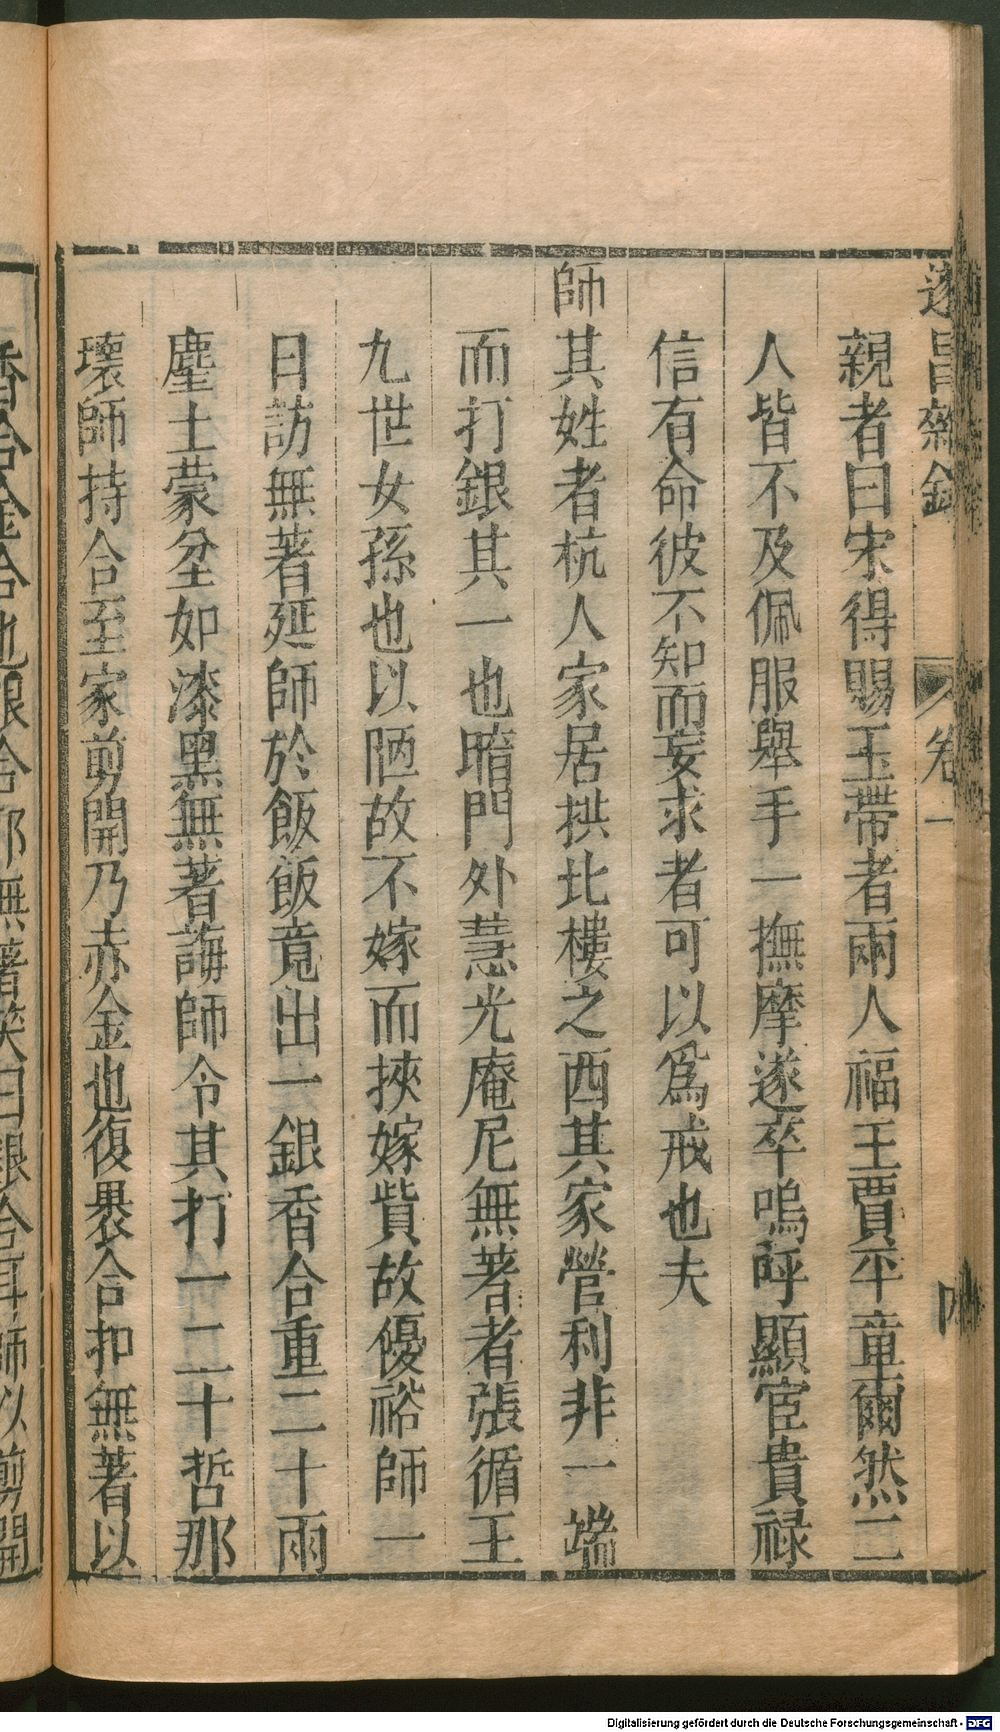 遂昌雜錄
卷一
親者曰宋得賜玉帶者兩人福王賈平章爾然二
人皆不及佩服舉手一撫摩遂卒嗚呼顯宦貴祿
信有命彼不知而妄求者可以為戒也夫
師其姓者杭人家居拱北樓之西其家營利非一端
而打銀其一也暗門外慧光庵尼無著者張循王
九世女孫也以陋故不嫁而挾嫁貲故優裕師一
日訪無著延師於飯飯竟出一銀香合重二十兩
塵土蒙坌如漆黑無著誨師令其打一二十哲那
環師持合至家剪開乃赤金也復褁合扣無著以
香合金合也銀合耶無著笑曰銀合耳師以剪開
Digitalisierung gefördert durch die Deutsche Forschungsgemeinschaft - DFG